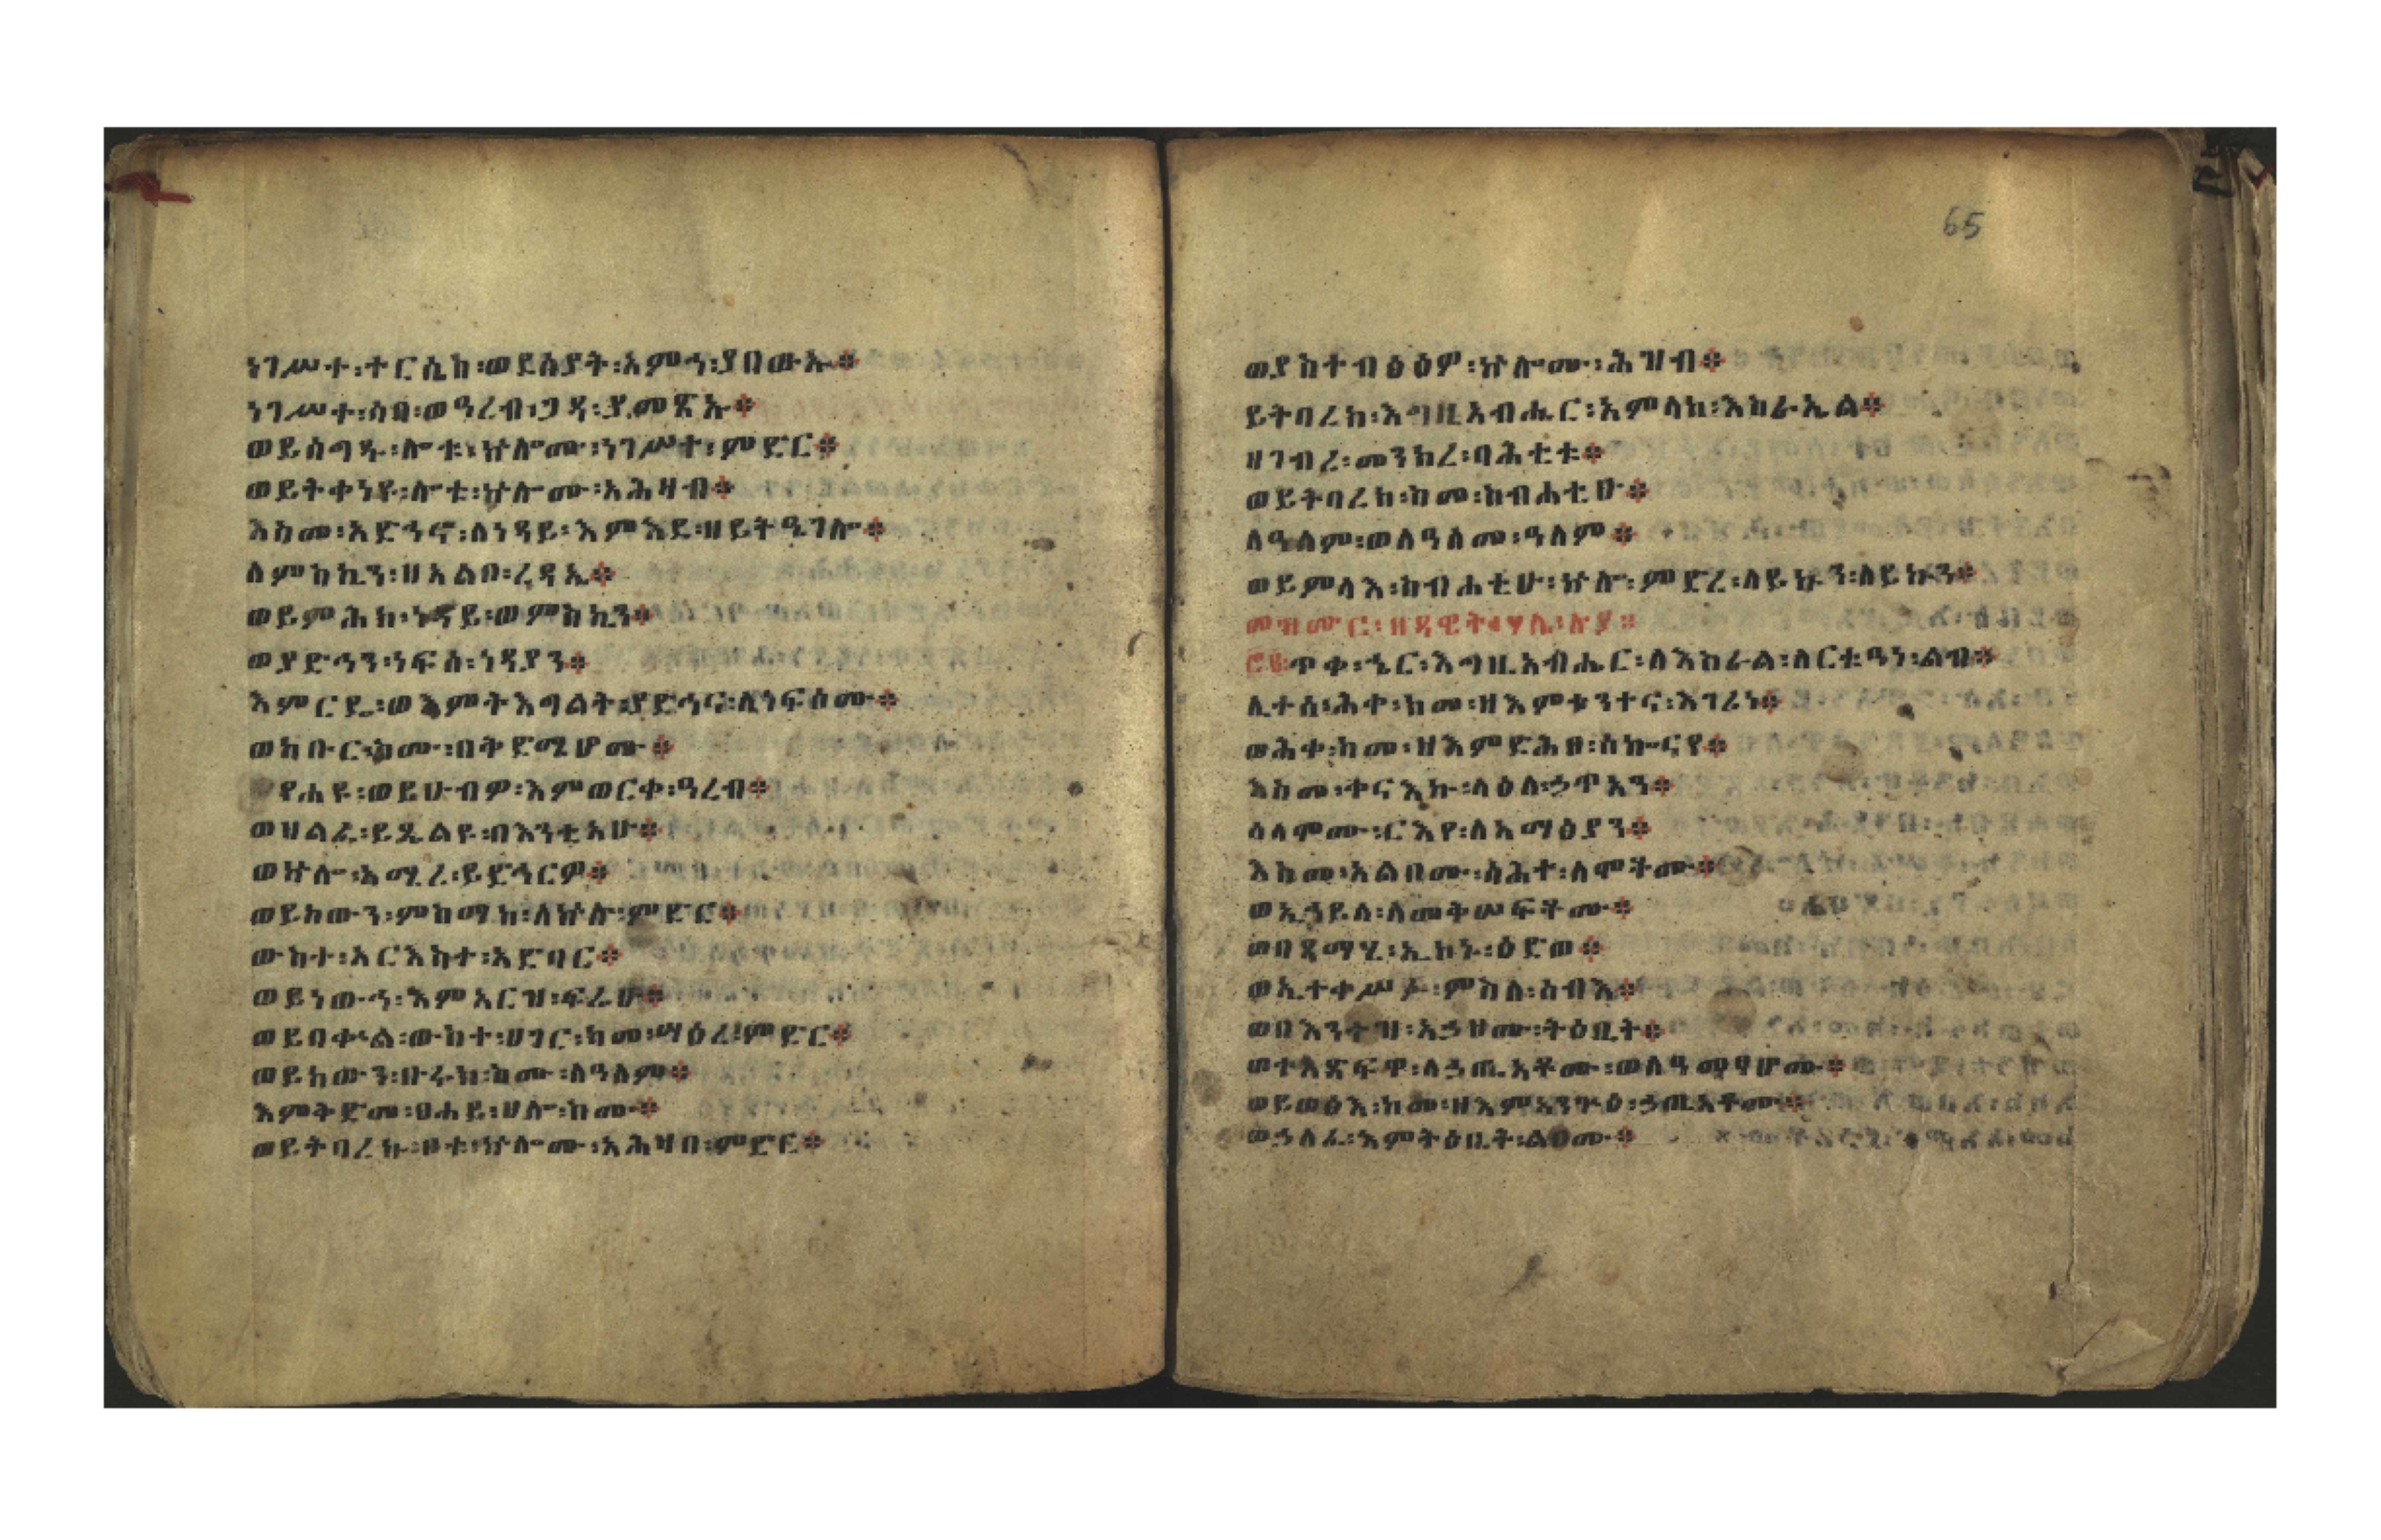 ነገሥተ፡ተርሴስ፡ወደሰያት፡አምኃ፡ያበውኡ።
ነገሥተ፡ሳባ፡ወዓረብ፡ጋዳ፡ያመጽኡ።
ወይሰግዱ፡ሎቱ፡ኵሎሙ፡ነገሥተ፡ምድር።
ወይትቀነዩ፡ሎቱ፡ኵሎሙ፡አሕዛብ።
እስመ፡አድኀኖ፡ለነዳይ፡እምእደ፡ዘይትዔገሎ።
ለምስኪን፡ዘአልቦ፡ረዳኢ።
ወይምሕክ፡ነዳይ፡ወምስኪን።
ወያድኅን፡ነፍሰ፡ነዳያን።
እምርዴ፡ወእምትእግልት፡ያድኅና፡ለነፍሶሙ።
ወክቡር፡ስሙ፡በቅድሜሆሙ።
የሐዩ፡ወይሁብዎ፡እምወርቀ፡ዓረብ።
ወዘልፈ፡ይጼልዩ፡በእንቲአሁ።
ወኵሎ፡አሚረ፡ይድኅርዎ።
ወይከውን፡ምስማክ፡ለኵሉ፡ምድር።
ውስተ፡አርእስተ፡አድባር።
ወይነውኅ፡እምአርዝ፡ፍሬሁ።
ወይበቍል፡ውስተ፡ሀገር፡ከመ፡ሣዕረ፡ምድር።
ወይከውን፡ቡሩክ፡ስሙ፡ለዓለም።
እምቅድመ፡ፀሐይ፡ሀሎ፡ስሙ።
ወይትባረኩ፡ቦቱ፡ኵሎሙ፡አሕዛበ፡ምድር።
65
ወያስተብፅዕዎ፡ኵሎሙ፡ሕዝብ።
ይትባረክ፡እግዚአብሔር፡አምላከ፡እስራኤል።
ዘገብረ፡መንክረ፡ባሕቲቱ።
ወይትባረክ፡ስመ፡ስብሐቲሁ።
ለዓለም፡ወለዓለመ፡ዓለም።
ወይምላእ፡ስብሐቲሁ፡ኵሎ፡ምድረ፡ለይኩን፡ለይኩን።
መዝሙር፡ዘዳዊት፡ሃሌ፡ሉያ።
ጥቀ፡ኄር፡እግዚአብሔር፡ለእስራል፡ለርቱዓነ፡ልብ።
ሊተሰ፡ሕቀ፡ከመ፡ዘእምቱንተና፡እገሪነ።
ወሕቀ፡ከመ፡ዘእምድሕፀ፡ሰኰናየ።
እስመ፡ቀናእኩ፡ላዕለ፡ኃጥአን።
ሰላሞሙ፡ርእየ፡ለአማፅያን።
እስመ፡አልቦሙ፡ሳሕተ፡ለሞቶሙ።
ወኢኃይለ፡ለመቅሠፍቶሙ።
ወበጻማሂ፡ኢኮኑ፡ዕድወ።
ወኢተቀሥፉ፡ምስለ፡ሰብእ።
ወበእንተዝ፡አኃዞሙ፡ትዕቢት።
ወተአጽፍዋ፡ለኃጢአቶሙ፡ወለዓመፃሆሙ።
ወይወፅእ፡ከመ፡ዘእምአንጕዕ፡ኃጢአቶሙ።
ወኃለፈ፡እምትዕቢት፡ልቦሙ።